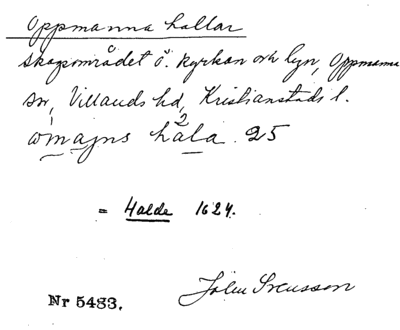 Oppmanna hallar
skogsområdet ö. kyrkan och byn, Oppmanna
sn, Villands hd, Kristianstads l.
åmajns håla 25
= Halde 1624.
John Svensson
Nr 5483.